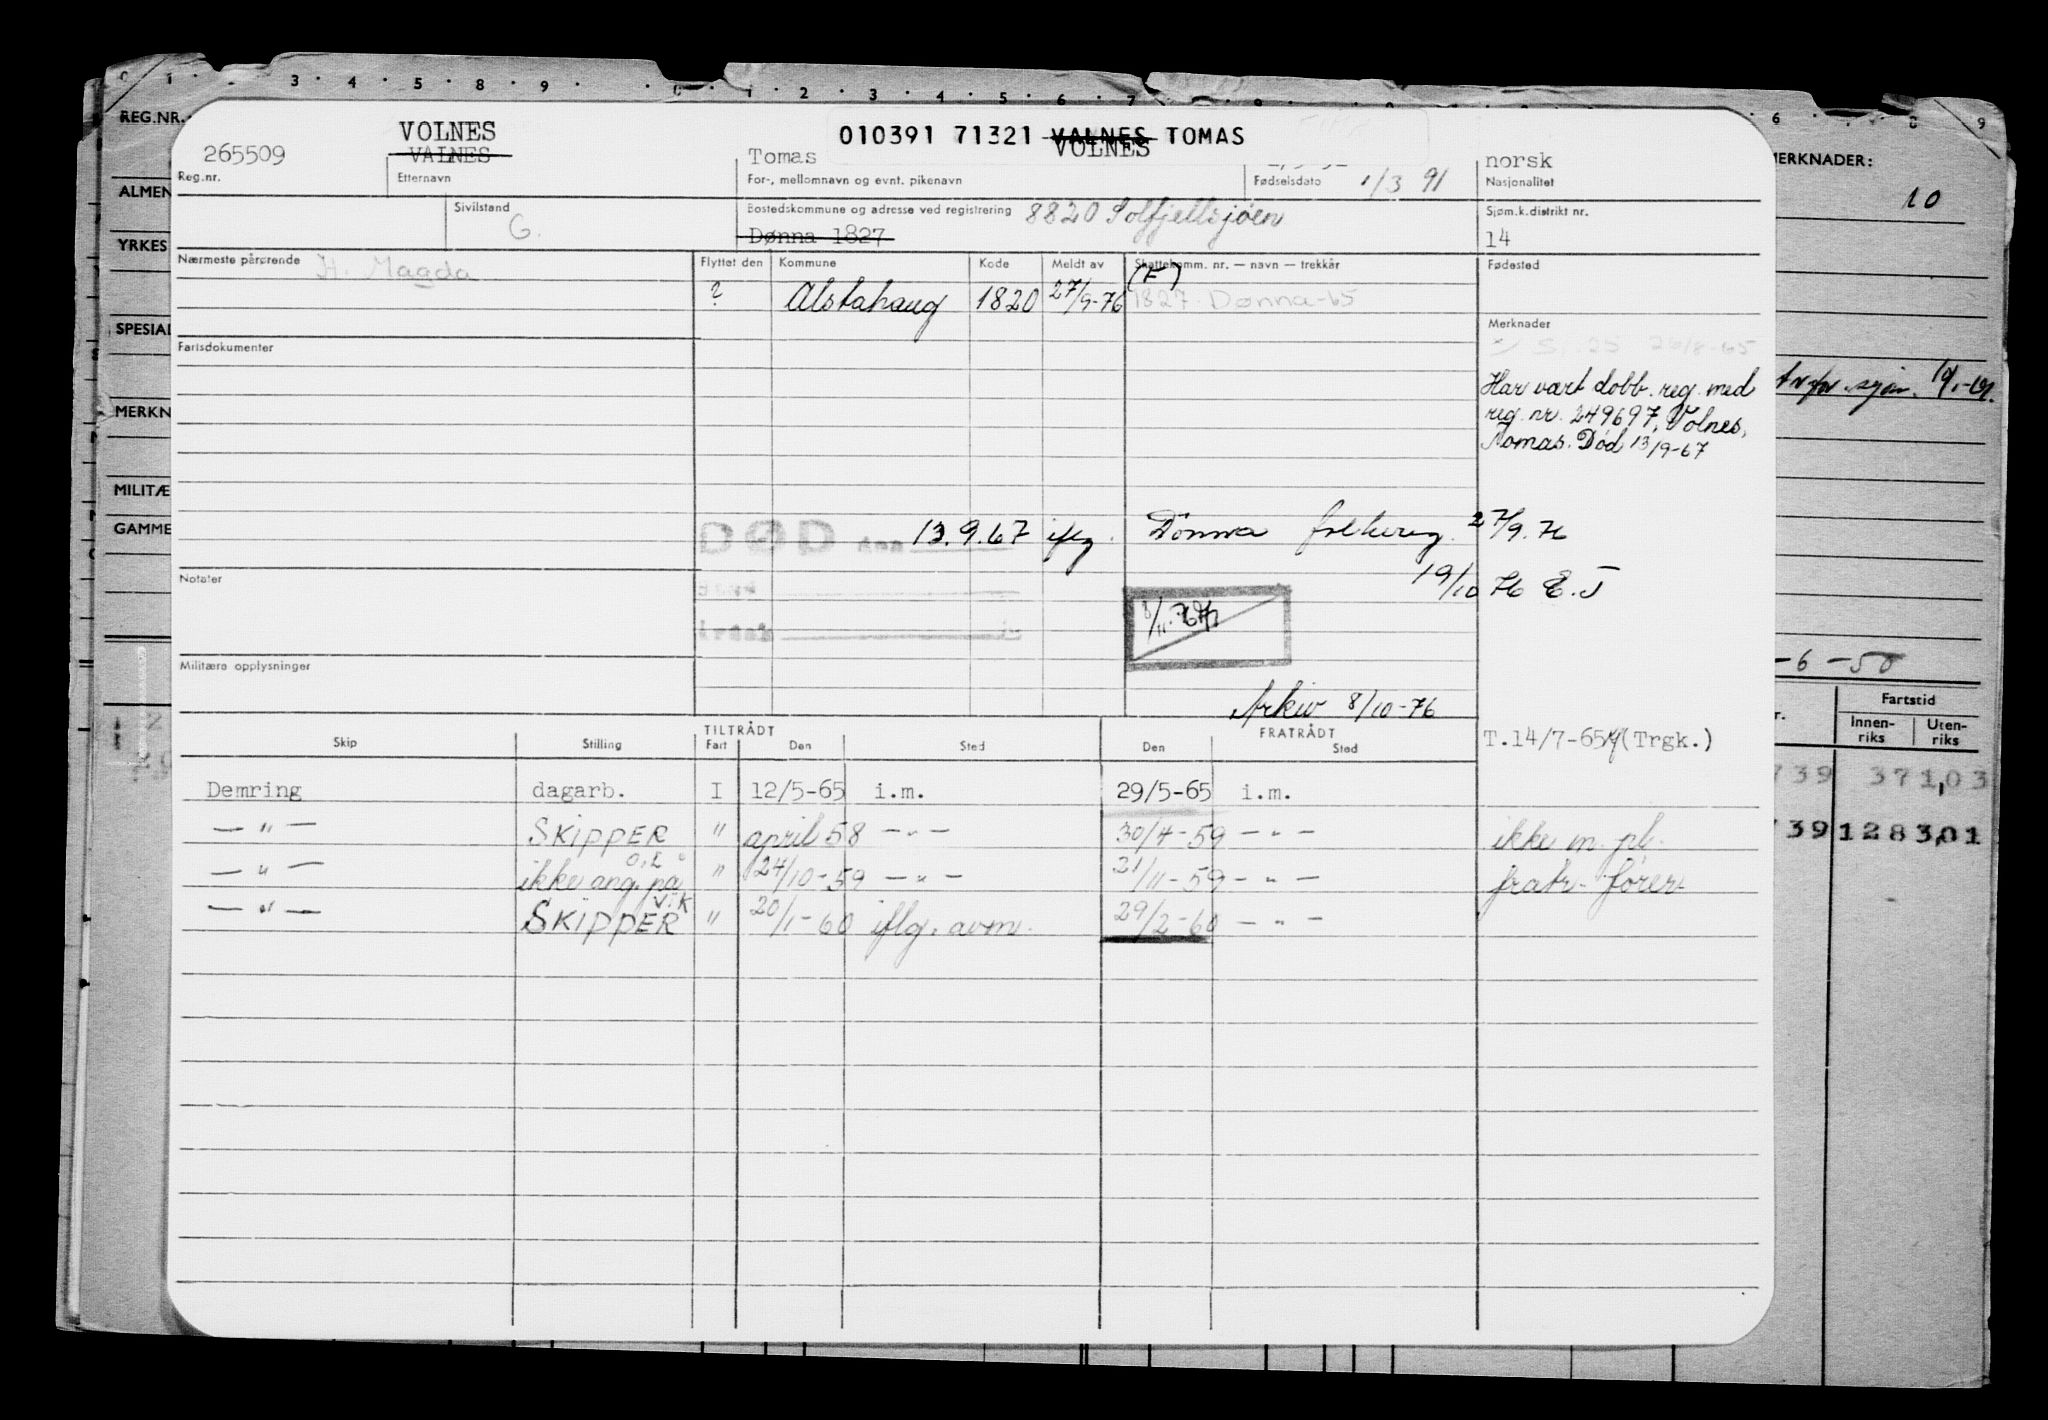 REG.NR.
ALMEN
YRKES
SPESIAL
MERKN
MILITÆ
GAMME
VOLNES
010391 71321 VALNES TOMAS
VOLNES
265509
VALNES
Tomas
norsk
Reg.nr.
Etternavn
For-, mellomnavn og evnt. pikenavn
Fødselsdato 1/3 91
Nasjonalitet
Sivilstand
G.
Bostedskommune og adresse ved registrering 8820 Solfjellsjøen
Dønna 1827
Sjøm.k.distrikt nr.
14
Nærmeste pårørende H. Magda
Flyttet den
Kommune
Kode
Meldt av
Skattekomm. nr. — navn — trekkår
Fødested
(F)
? Alstahaug 1820 27/9-76 1827 Dønna-65
Merknader
26/8-65
Har vært dobb. reg. med
reg. nr. 249697, Volnes,
Tomas. Død 13/9-67
Fartsdokumenter
DØD den 13.9.67 iflg. Dönna folkereg. 27/9.76
19/10 76 E.J
Notater
8/11.76
Militære opplysninger
Arkiv 8/10-76
T.14/7-65 (Trgk.)
TILTRÅDT
FRATRÅDT
Skip
Stilling
Fart
Den
Sted
Den
Sted
Demring dagarb. I 12/5-65 i.m. 29/5-65 i.m.
— " — SKIPPER " april 58 — " — 30/4-59 — " — ikke m. pl.
— " — ikke ang. på " 24/10-59 — " — 21/11-59 — " — fratr. fører
— " — SKIPPER " 20/1-60 iflg. avm. 29/2-60 — " —
MERKNADER:
10
-6-50
Fartstid
Innen-
riks
Uten-
riks
739 371,03
739 1283,01